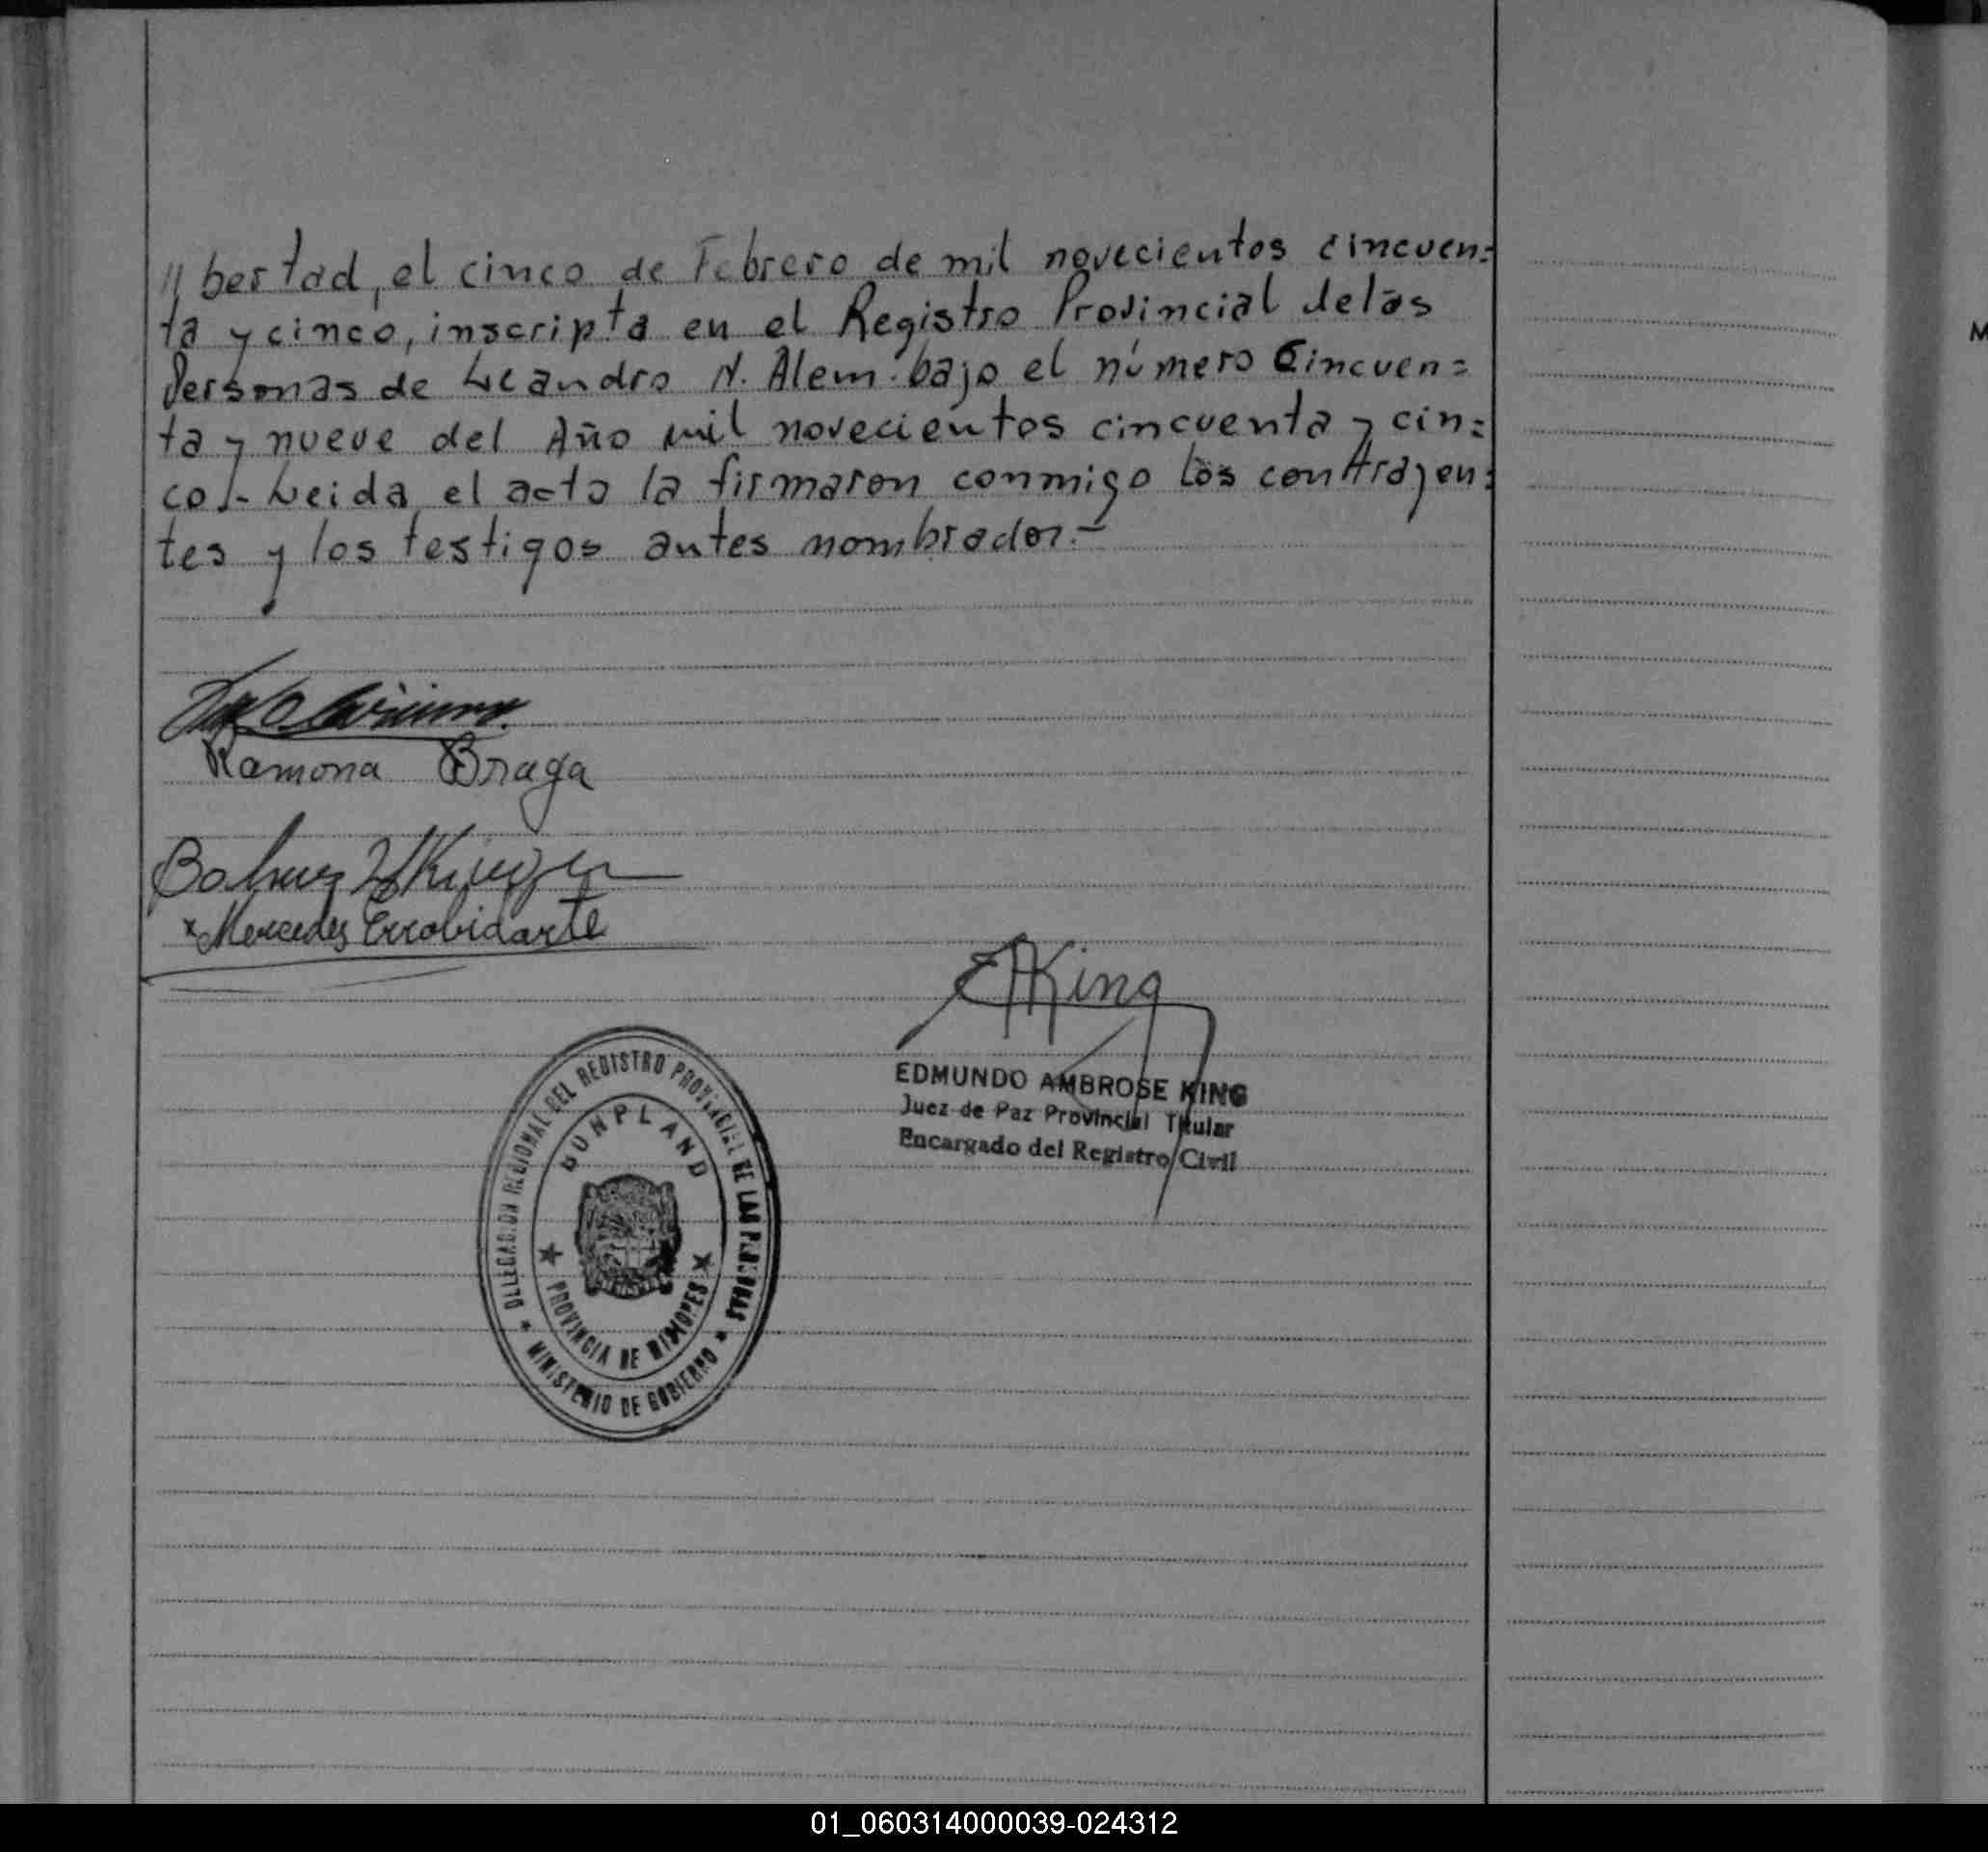 // bertad, el cinco de Febrero de mil novecientos cincuen=
ta y cinco, inscripta en el Registro Provincial de las
Personas de Leandro N. Alem bajo el número Cincuen=
ta y nueve del Año mil novecientos cincuenta y cin=
co.- Leida el acta la firmaron conmigo los contrayen=
tes y los testigos antes nombrados.-
Ramona Braga
x Mercedes Errobidarte
EAKing
EDMUNDO AMBROSE KING
Juez de Paz Provincial Titular
Encargado del Registro Civil
DELEGACION REGIONAL DEL REGISTRO PROVINCIAL DE LAS PERSONAS
BONPLAND
PROVINCIA DE MISIONES
MINISTERIO DE GOBIERNO
M
01_060314000039-024312